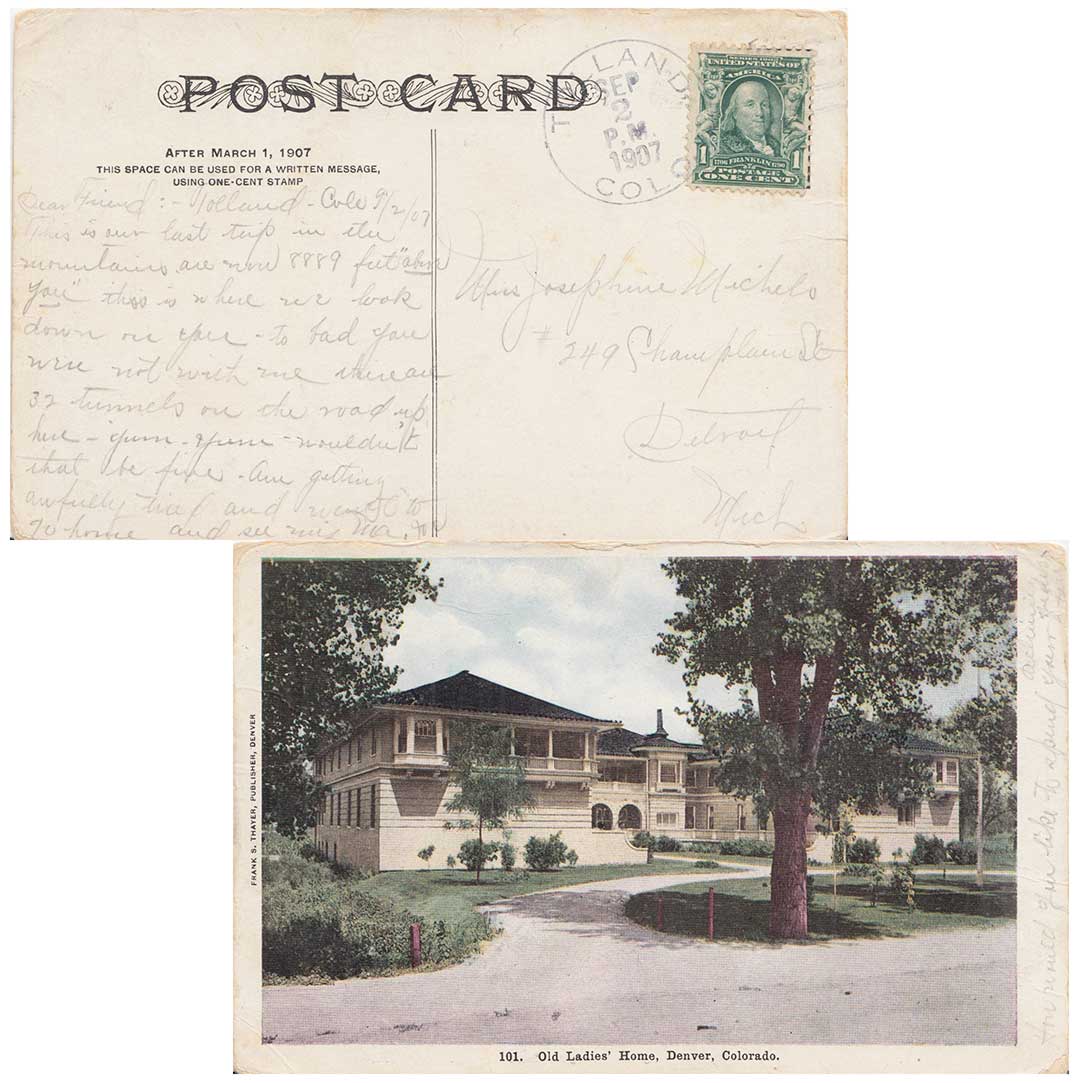 POST CARD
AFTER MARCH 1, 1907
THIS SPACE CAN BE USED FOR A WRITTEN MESSAGE,
USING ONE-CENT STAMP
TOLLAND
SEP
2
P.M.
1907
COLO
SERIES 1902
UNITED STATES OF
AMERICA
1 1706 FRANKLIN 1790 1
POSTAGE
ONE CENT
Dear Friend :- Tolland - Colo 9/2/07
This is our last trip in the
mountains are now 8889 feet "above
you" this is where we look
down on you - to bad you
were not with me there are
32 tunnels on the road up
here - yum - yum - wouldn't
that be fine - Am getting
awfully tired and want to
go home and see my Ma.
Miss Josephine Michels
# 249 Champlain St
Detroit
Mich
FRANK S. THAYER, PUBLISHER, DENVER
How would you like to spend your
101. Old Ladies' Home, Denver, Colorado.